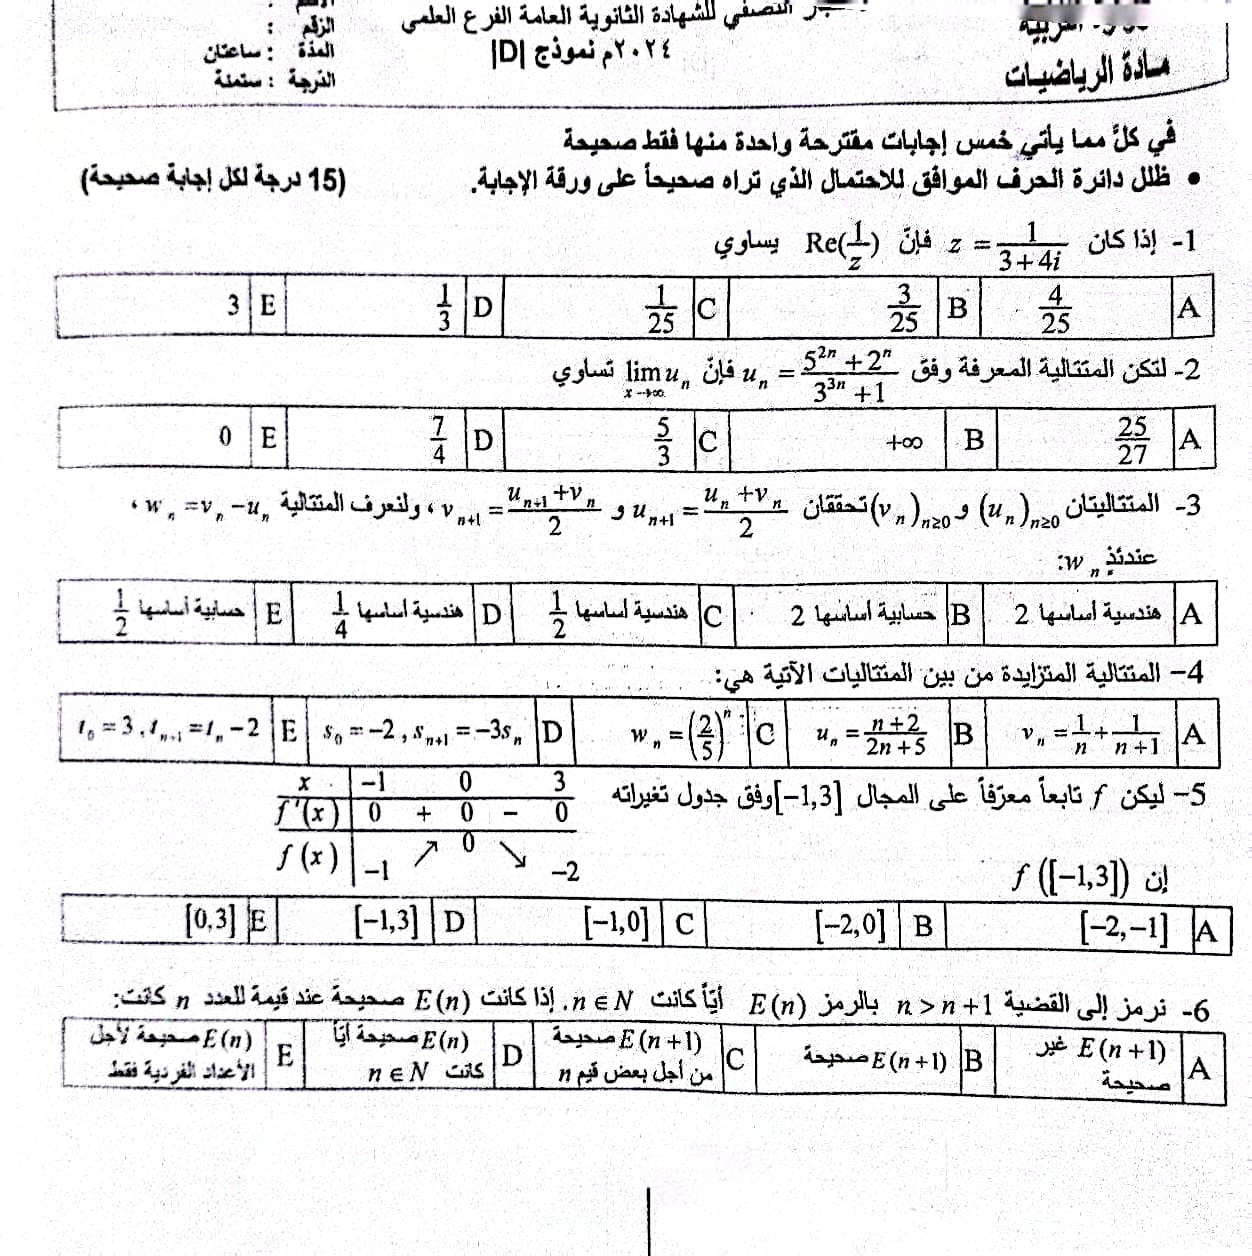 النصفي للشهادة الثانوية العامة الفرع العلمي
٢٠٢٤م نموذج |D|
الرقم :
المدة : ساعتان
الدرجة : ستمئة
مادة الرياضيات
في كلَّ مما يأتي خمس إجابات مقترحة واحدة منها فقط صحيحة
• ظلل دائرة الحرف الموافق للاحتمال الذي تراه صحيحاً على ورقة الإجابة. (15 درجة لكل إجابة صحيحة)
1- إذا كان z = 1/(3+4i) فإنّ Re(1/z) يساوي
A 4/25 B 3/25 C 1/25 D 1/3 E 3
2- لتكن المتتالية المعرفة وفق u_n = (5^{2n} + 2^n)/(3^{3n} + 1) فإنّ lim u_n x→+∞ تساوي
A 25/27 B +∞ C 5/3 D 7/4 E 0
3- المتتاليتان (u_n)_{n≥0} و (v_n)_{n≥0} تحققان u_{n+1} = (u_n + v_n)/2 و v_{n+1} = (u_{n+1} + v_n)/2 ، ولنعرف المتتالية w_n = v_n − u_n ،
عندئذٍ w_n:
A هندسية أساسها 2 B حسابية أساسها 2 C هندسية أساسها 1/2 D هندسية أساسها 1/4 E حسابية أساسها 1/2
4- المتتالية المتزايدة من بين المتتاليات الآتية هي:
A v_n = 1/n + 1/(n+1) B u_n = (n+2)/(2n+5) C w_n = (2/5)^n D s_0 = −2 , s_{n+1} = −3s_n E t_0 = 3 , t_{n+1} = t_n − 2
5- ليكن f تابعاً معرّفاً على المجال [−1,3] وفق جدول تغيراته
x −1 0 3
f'(x) 0 + 0 − 0
f(x) −1 ↗ 0 ↘ −2
إن f([−1,3])
A [−2,−1] B [−2,0] C [−1,0] D [−1,3] E [0,3]
6- نرمز إلى القضية n > n+1 بالرمز E(n) أيّاً كانت n ∈ N. إذا كانت E(n) صحيحة عند قيمة للعدد n كانت:
A E(n+1) غير صحيحة B E(n+1) صحيحة C E(n+1) صحيحة من أجل بعض قيم n D E(n) صحيحة أيّا كانت n ∈ N E E(n) صحيحة لأجل الأعداد الفردية فقط